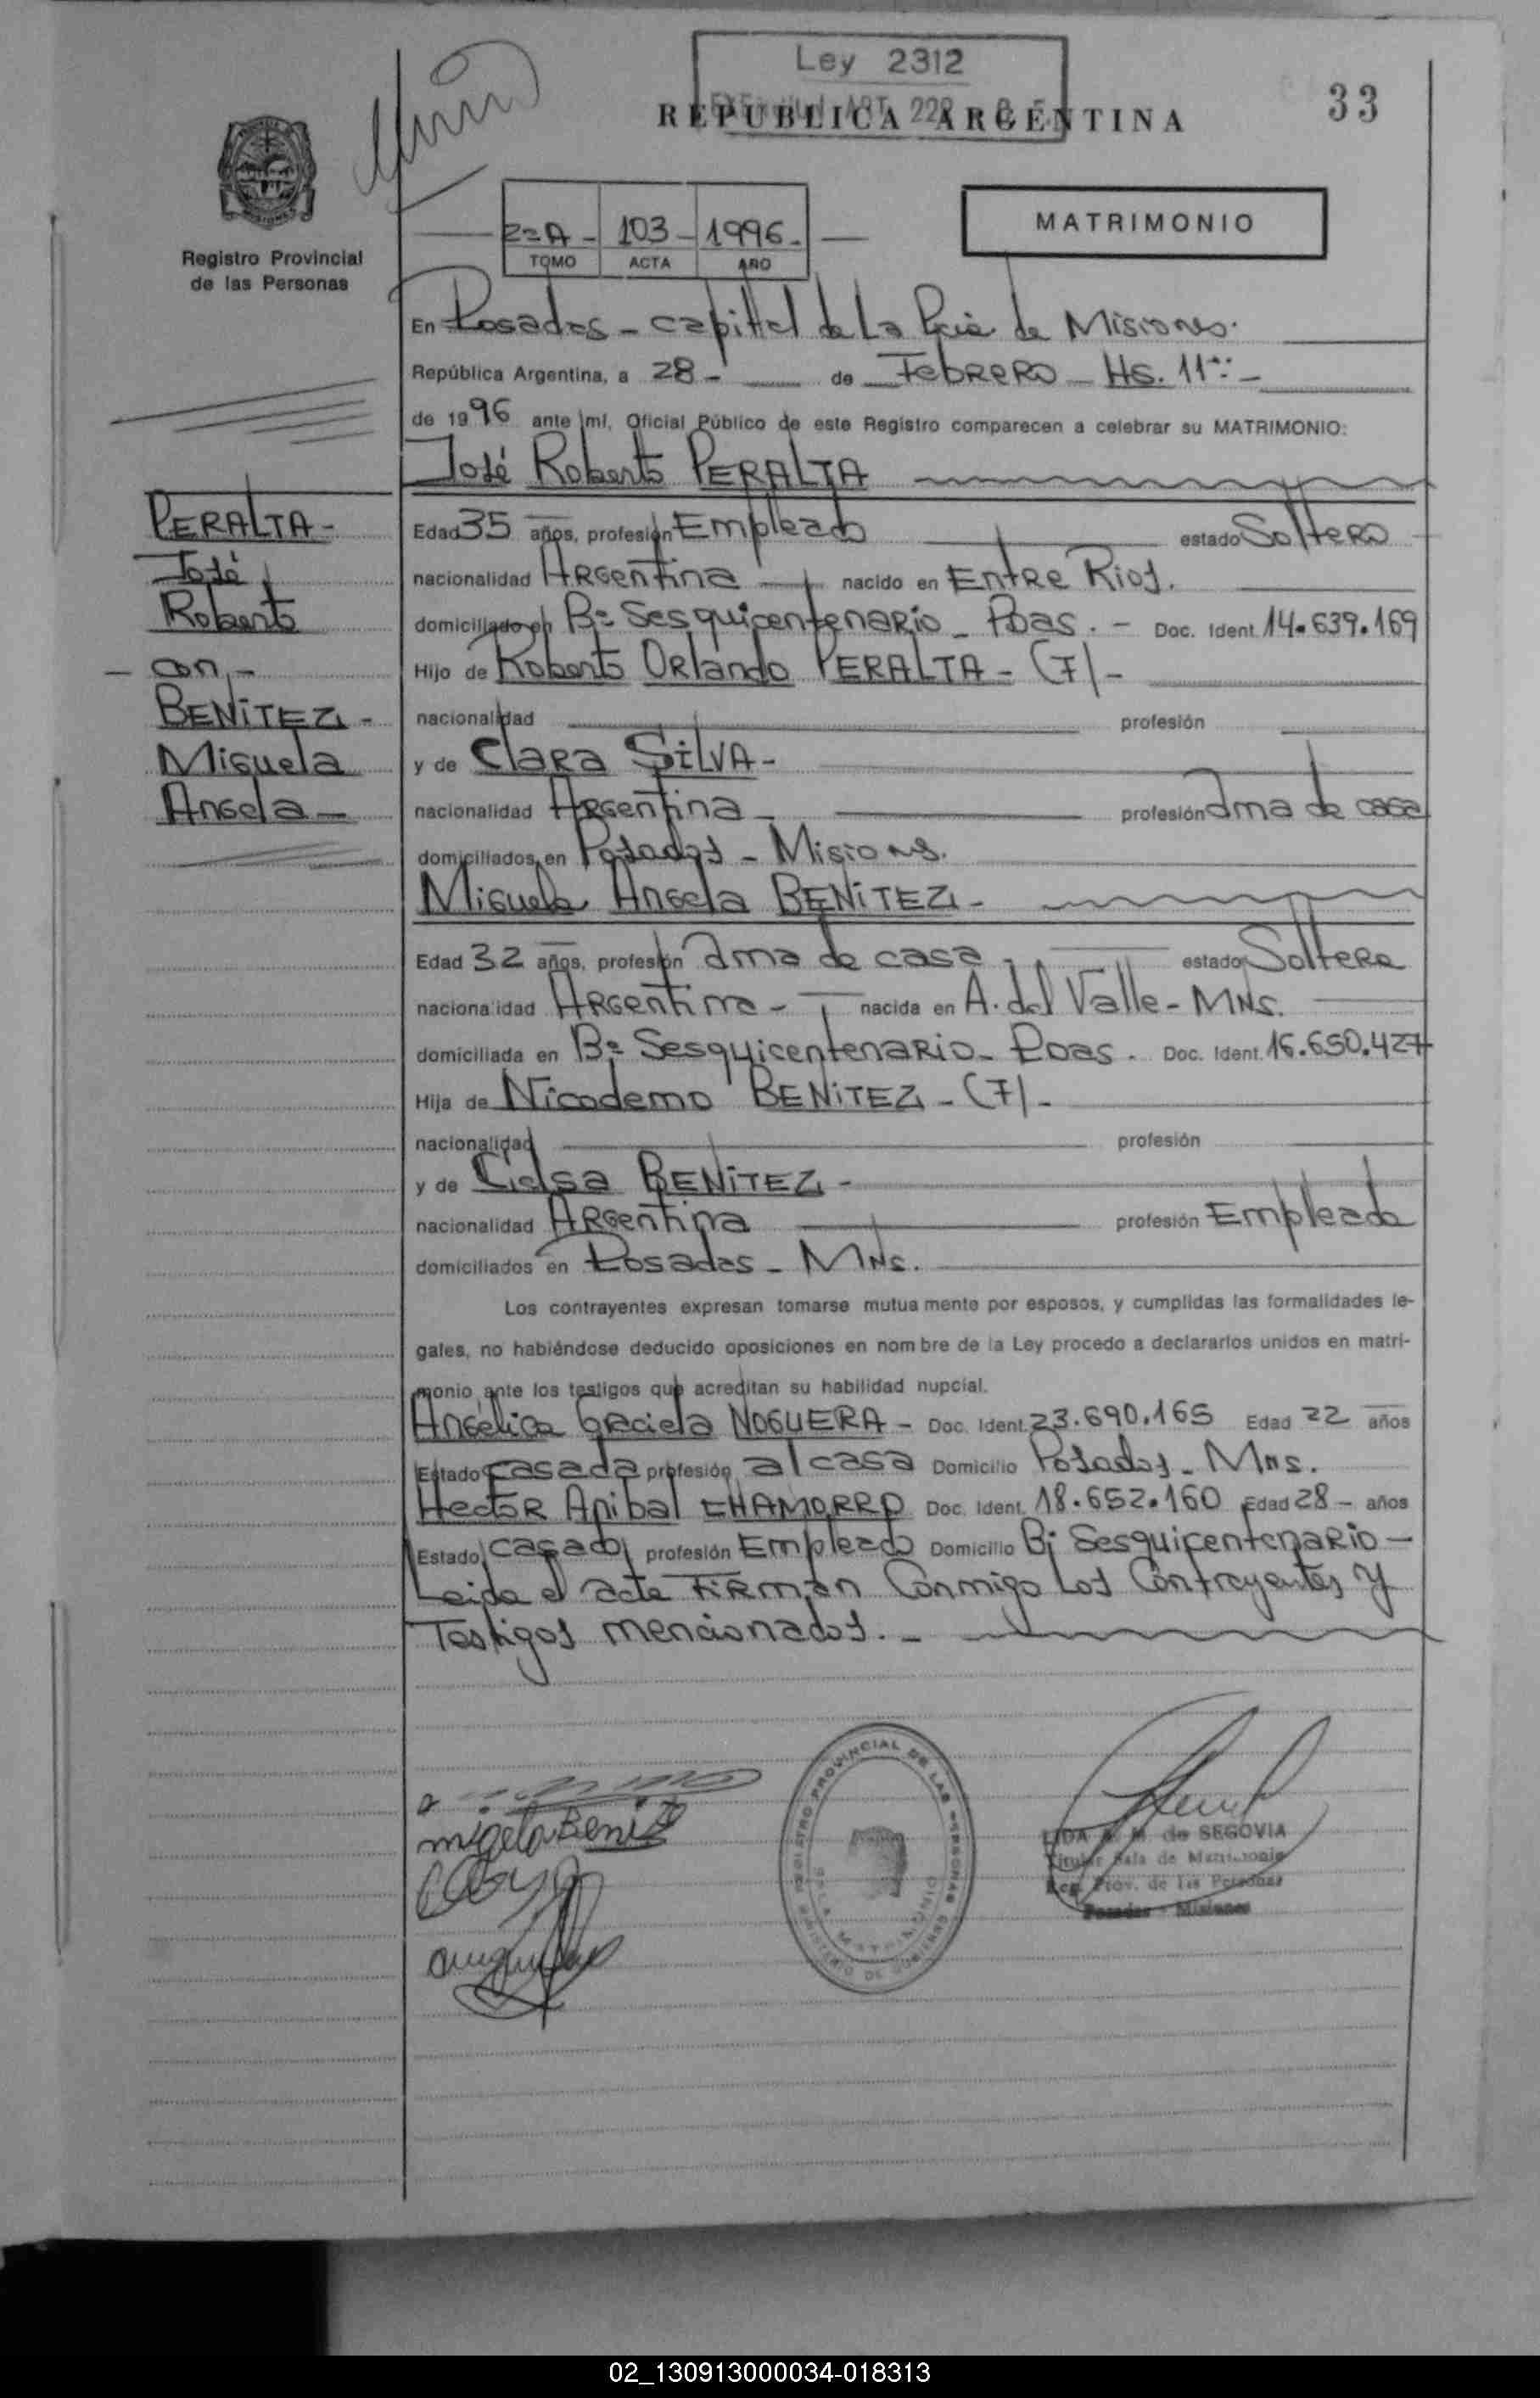 Ley 2312
REPUBLICA ARGENTINA
33
2=A - 103 - 1996.
TOMO ACTA AÑO
MATRIMONIO
Registro Provincial
de las Personas
En Posadas - capital de La Pcia de Misiones.
República Argentina, a 28 - de Febrero - Hs. 11
de 1996 ante mí, Oficial Público de este Registro comparecen a celebrar su MATRIMONIO:
José Roberto PERALTA
PERALTA -
José
Roberto
- con -
BENITEZ -
Miguela
Angela -
Edad 35 años, profesión Empleado estado Soltero
nacionalidad Argentina - nacido en Entre Rios.
domiciliado en Bº Sesquicentenario - Pdas. - Doc. Ident. 14.639.169
Hijo de Roberto Orlando PERALTA - (7) -
nacionalidad profesión
y de Clara SILVA -
nacionalidad Argentina - profesión Ama de casa
domiciliados en Posadas - Misiones.
Miguela Angela BENITEZ -
Edad 32 años, profesión Ama de casa - estado Soltera
nacionalidad Argentina - nacida en A. del Valle - MNs.
domiciliada en Bº Sesquicentenario - Pdas. Doc. Ident. 16.650.427
Hija de Nicodemo BENITEZ - (7) -
nacionalidad profesión
y de BENITEZ -
nacionalidad Argentina profesión Empleada
domiciliados en Posadas - MNs.
Los contrayentes expresan tomarse mutuamente por esposos, y cumplidas las formalidades le-
gales, no habiéndose deducido oposiciones en nombre de la Ley procedo a declararlos unidos en matri-
monio ante los testigos que acreditan su habilidad nupcial.
Angélica Graciela NOGUERA - Doc. Ident. 23.690.165 Edad 22 años
Estado casada profesión a/casa Domicilio Posadas - MNs.
Hector Anibal CHAMORRO Doc. Ident. 18.652.160 Edad 28 - años
Estado casado profesión Empleado Domicilio Bº Sesquicentenario -
Leida el acta Firman Conmigo Los Contrayentes y
Testigos mencionados. -
migela Benitez
REGISTRO PROVINCIAL DE LAS PERSONAS
SALA MATRIMONIO
MINISTERIO DE GOBIERNO
LIDA de SEGOVIA
Titular Sala de Matrimonio
Reg. Prov. de las Personas
Posadas - Misiones
02_130913000034-018313